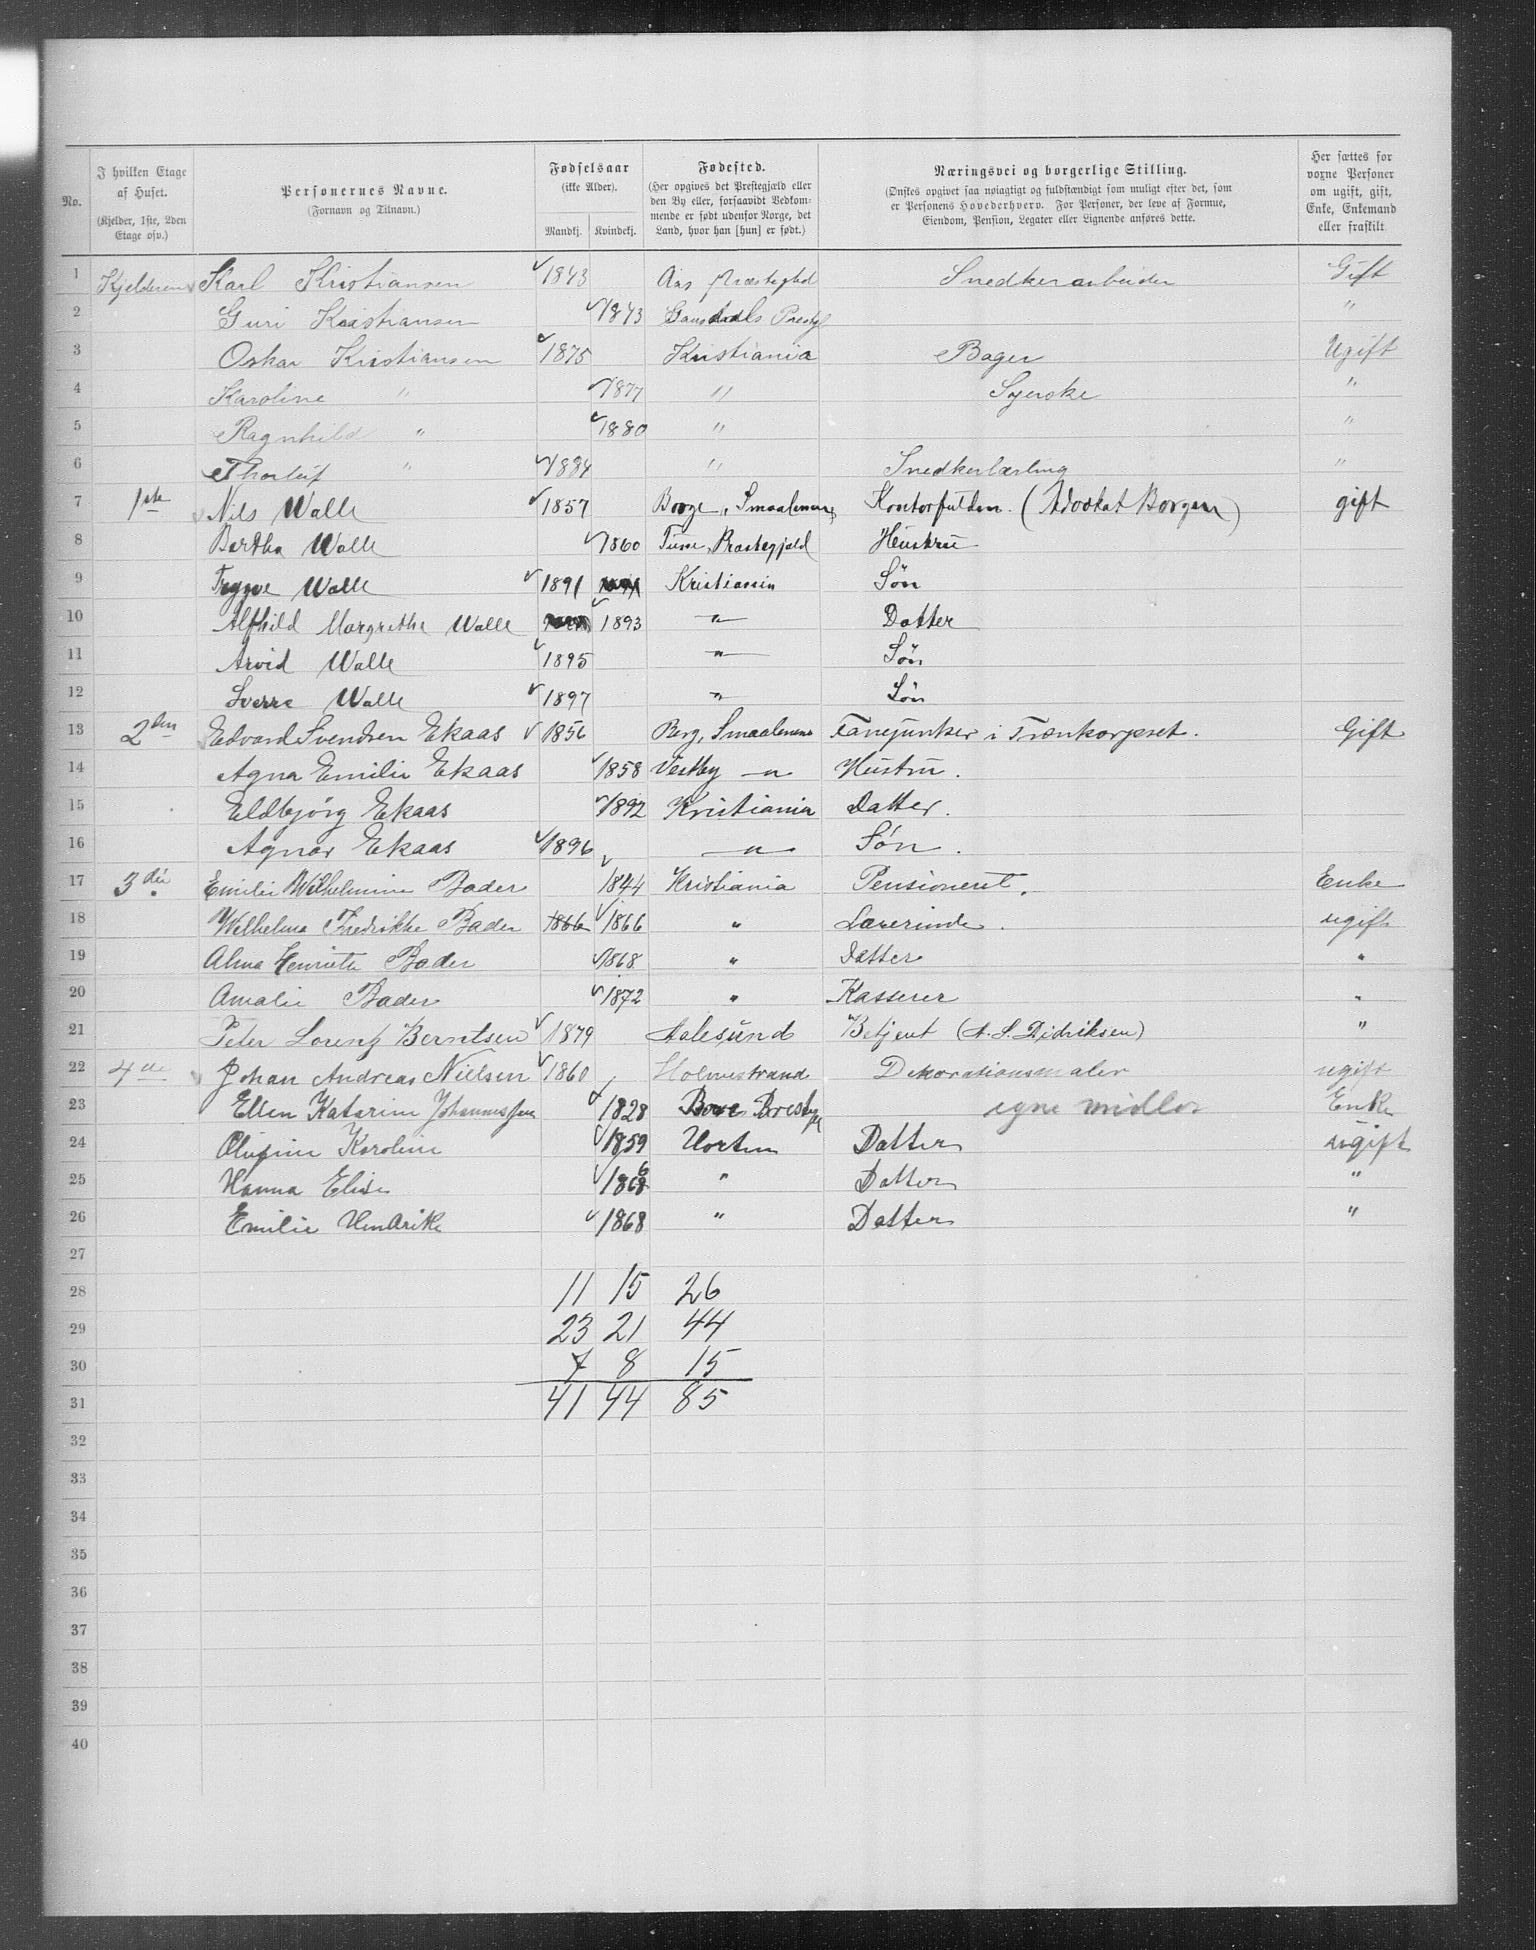 No. | I hvilken Etage af Huset. (Kjelder, 1ste, 2den Etage osv.) | Personernes Navne. (Fornavn og Tilnavn.) | Fødselsaar (ikke Alder). Mandkj. Kvindekj. | Fødested. (Her opgives det Prestegjæld eller den By eller, forsaavidt Vedkommende er født udenfor Norge, det Land, hvor han [hun] er født.) | Næringsvei og borgerlige Stilling. (Ønskes opgivet saa nøiagtigt og fuldstændigt som muligt efter det, som er Personens Hovederhverv. For Personer, der leve af Formue, Eiendom, Pension, Legater eller Lignende anføres dette.) | Her sættes for voxne Personer om ugift, gift, Enke, Enkemand eller fraskilt.
1 Kjelderen Karl Kristiansen 1843 Aas Snedkerarbeider Gift
2 Guri Kristiansen 1843 Prestgj "
3 Oskar Kristiansen 1875 Kristiania Bager Ugift
4 Karoline " 1877 " Syerske "
5 Ragnhild " 1880 " "
6 Thorleif " 1884 " Snedkerlærling "
7 1ste Nils Walle 1857 Borge, Smaalenene Kontorfuldm. (Advokat Borgen) gift
8 Bertha Walle 1860 Prestegjeld Hustru
9 Trygve Walle 1891 Kristiania Søn
10 Alfhild Margrethe Walle 1893 " Datter
11 Arvid Walle 1895 " Søn
12 Sverre Walle 1897 " Søn
13 2den Edvard Svendsen Ekaas 1856 Berg, Smaalenene Fanejunker i Trænkorpset. Gift
14 Agna Emilie Ekaas 1858 Vestby " Hustru.
15 Eldbjørg Ekaas 1892 Kristiania Datter.
16 Agnar Ekaas 1896 " Søn.
17 3die Emilie Wilhelmine Bader 1844 Kristiania Pensioneret. Enke
18 Wilhelma Fredrikke Bader 1866 1866 " Lærerinde. ugift
19 Alma Henriette Bader 1868 " Datter "
20 Amalie Bader 1872 " Kasserer "
21 Peter Lorentz Berntsen 1879 Aalesund Betjent (A. S. Didriksen) "
22 4de Johan Andreas Nielsen 1860 Holmestrand Dekorationsmaler ugift
23 Ellen Katarine Johannessen 1828 Borre Prestegj egne midler Enke
24 Olufine Karoline 1859 Horten Datter ugift
25 Hanna Elise 1866 " Datter "
26 Emilie Hendrikke 1868 " Datter "
27
28 11 15 26
29 23 21 44
30 7 8 15
31 41 44 85
32
33
34
35
36
37
38
39
40